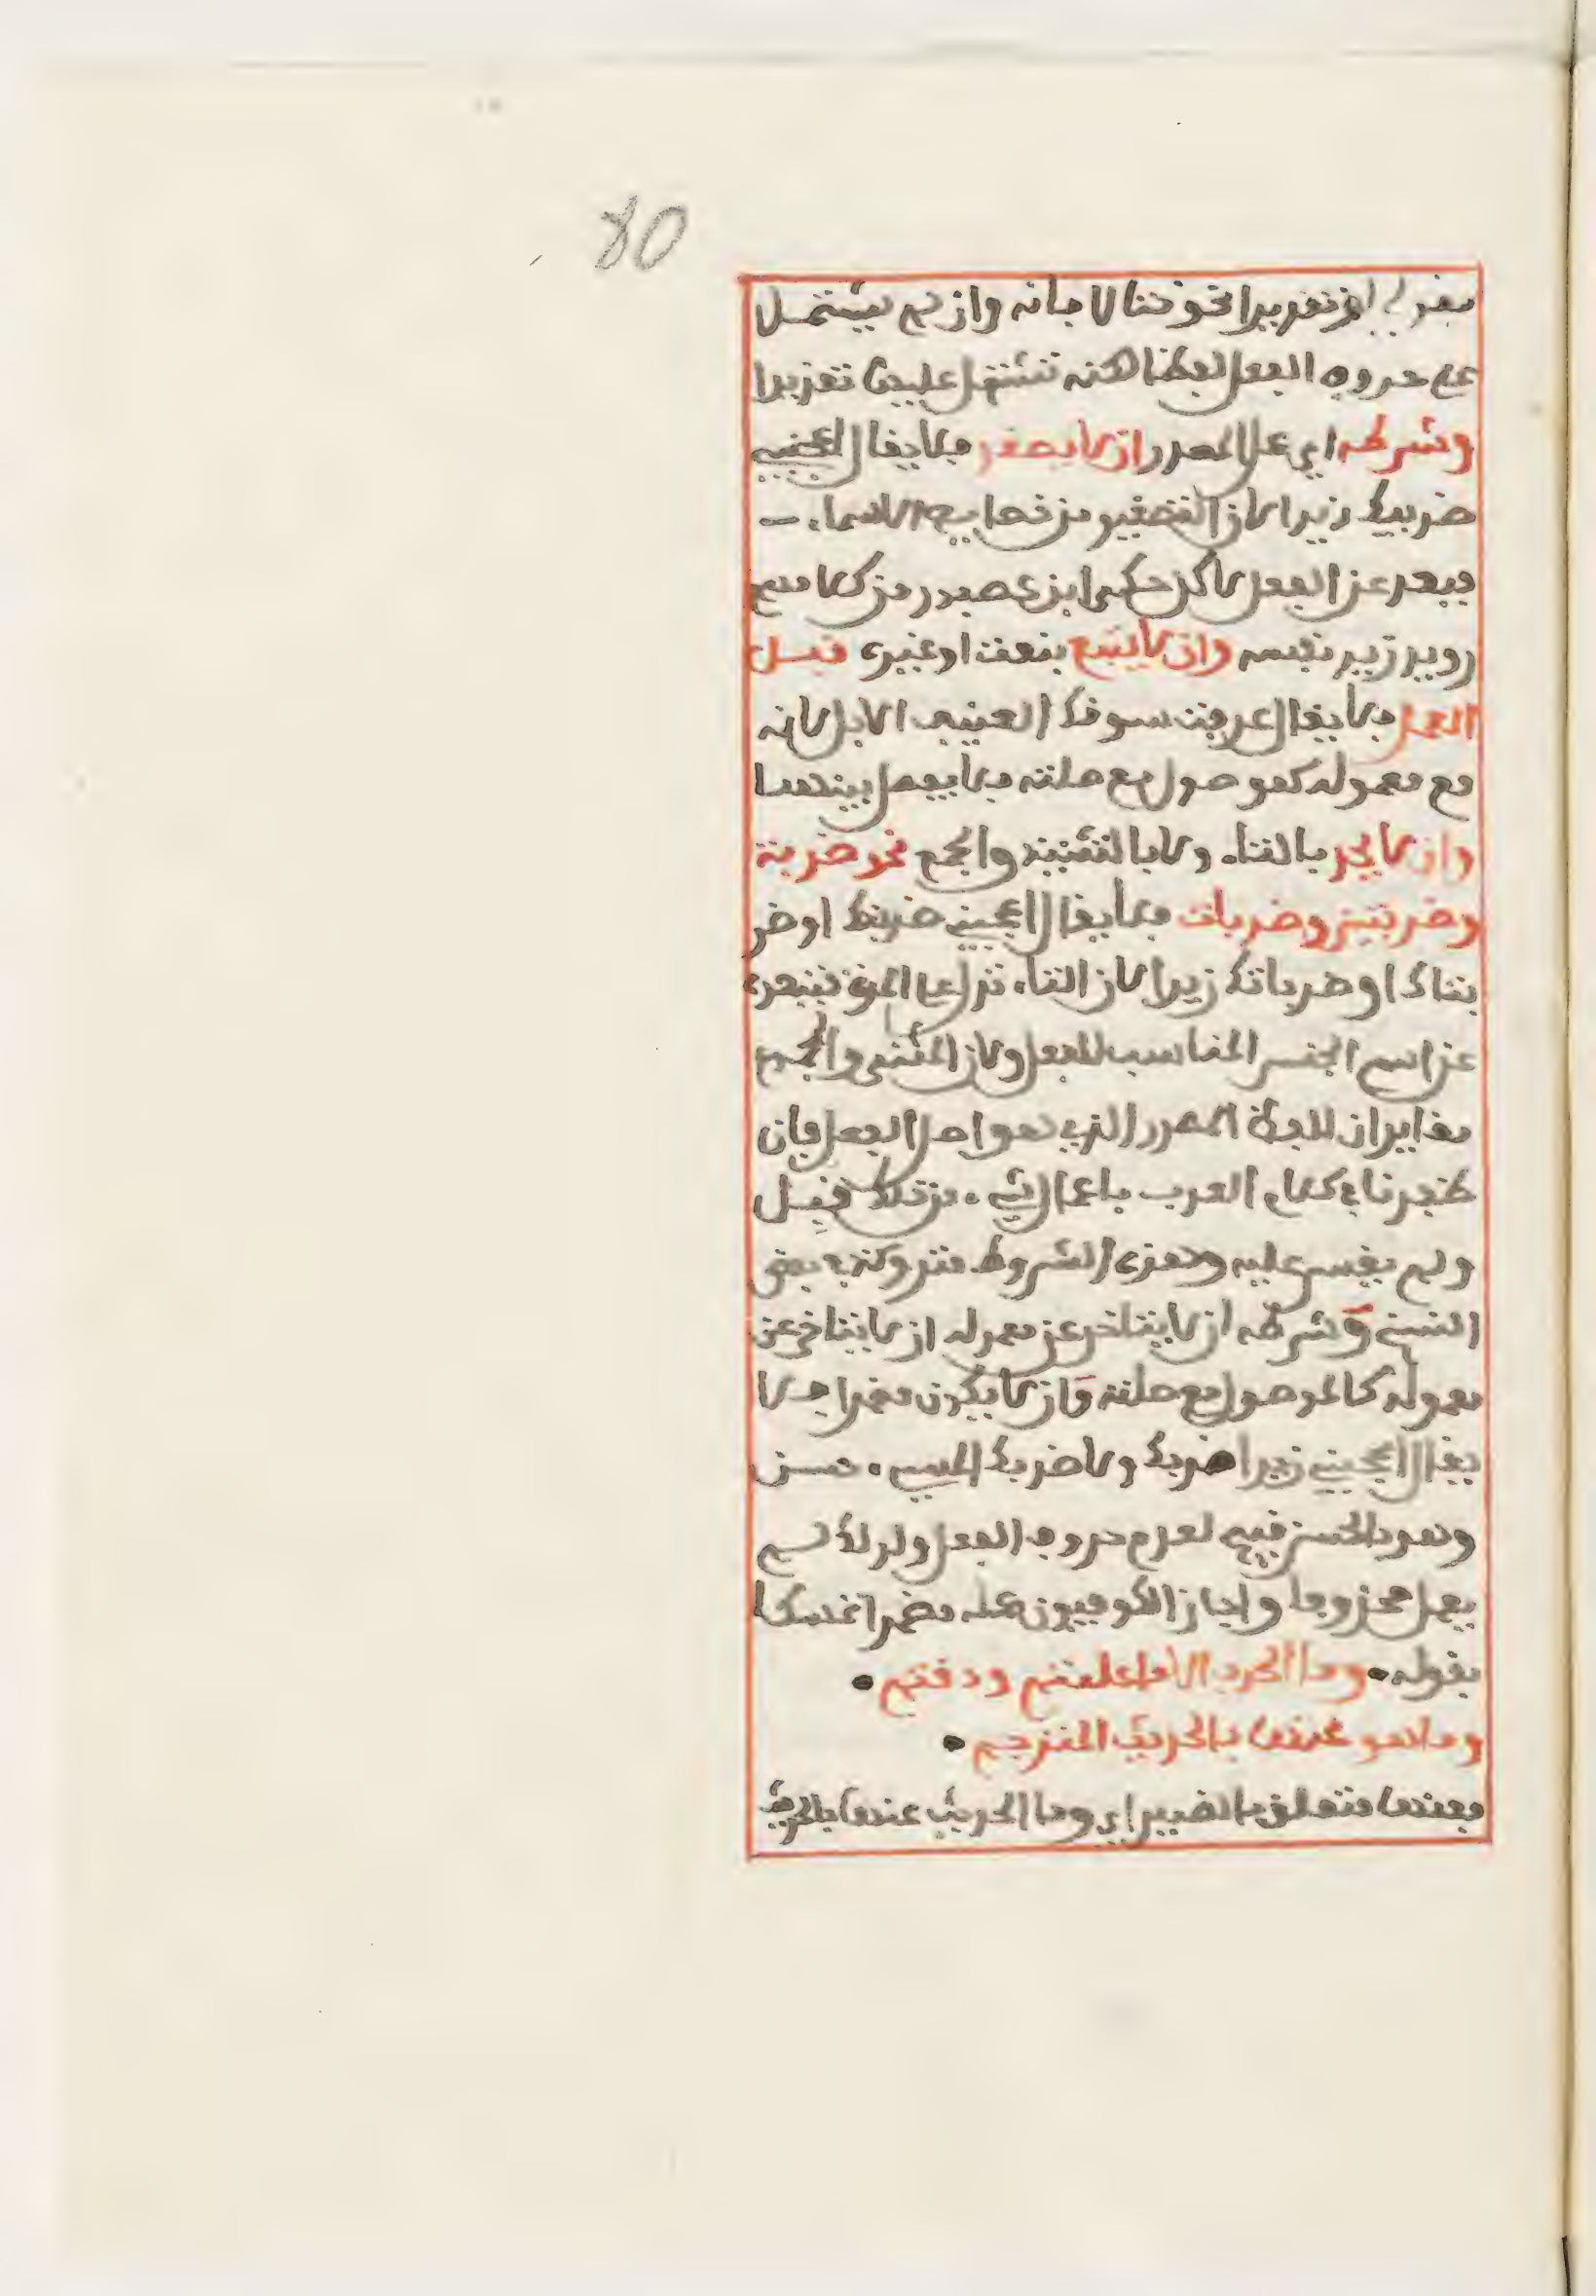 80
او تقديرا نحو قتالا فانه وان لم يشتمل
على حروف الفعل لفظا لكنه تشتمل عليها تقديرا
وشرطه اي عمل المصدر ان لا يصغر فلا يقال اعجبني
ضريبك زيدا لان التصغير من خصايص الاسماء
فيبعد عن الفعل لاكن حكى ابن عصفور من كلامهم
رويد زيد نفسه وان لا يتبع بنعت او غيره قبل
العمل فلا يقال عرفت سوقك العنيف الابل لانه
مع معموله كموصول مع صلته فلا يفصل بينهما
وان لا يحد بالتاء ولا بالتثنية والجمع نحو ضربة
وضربتين وضربات فلا يقال اعجبني ضربتك او ضر
بتاك او ضرباتك زيدا لان التاء تدل على المرة فتبعده
عن اسم الجنس المناسب للفعل ولان المثنى والجمع
مغايران للفظ المصدر الذي هو اصل الفعل فان
ظفرنا في كلام العرب باعمال شيء من ذلك قبل
ولم يقس عليه وهذه الشروط متروكة في بعض
النسخ وشرطه ان لا يتاخر عن معموله ان لا يتاخر عن
معموله كالموصول مع صلته وان لا يكون مضمرا فلا
يقال اعجبني زيدا ضربك ولا ضربك المسيء حسن
وهو المحسن قبيح لعدم حروف الفعل ولذلك لم
يعمل محذوفا واجاز الكوفيون عمله مضمرا تمسكا
بقوله وما الحرب الا ما علمتم وذقتم
وما هو عنها بالحديث المترجم
فعنها متعلق بالضمير اي وما الحديث عنها بالحديث